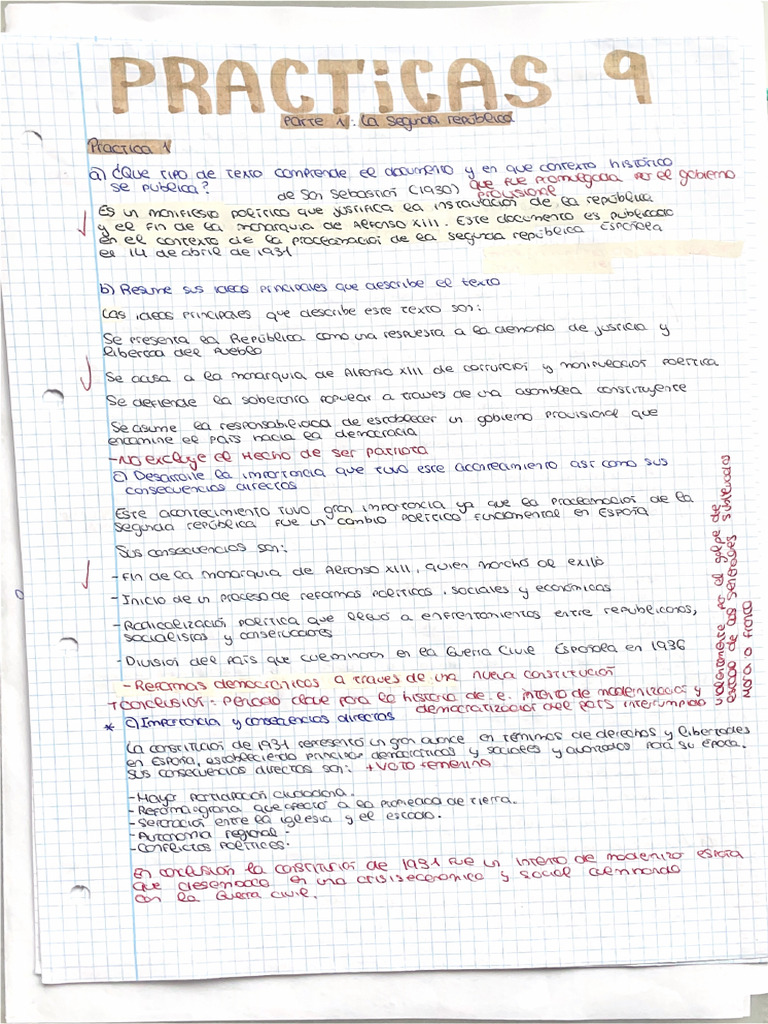 PRACTICAS 9
Parte 1: La Segunda república
Practica 1
a) ¿Que tipo de texto comprende el documento y en que contexto histórico
se publica?
de San Sebastian (1930) que fue promulgada por el gobierno
provisional
Es un manifiesto político que justifica la instauracion de la república
y el fin de la monarquia de Alfonso XIII. Este documento es publicado
en el contexto de la proclamacion de la segunda república Española
el 14 de abril de 1931
b) Resume sus ideas principales que describe el texto
Las ideas principales que describe este texto son:
Se presenta la República como una respuesta a la demanda de justicia y
libertad del pueblo
Se acusa a la monarquia de Alfonso XIII de corrupcion y manipulacion política
Se defiende la soberania popular a traves de una asamblea constituyente
Se asume la responsabilidad de establecer un gobierno provisional que
encamine el país hacia la democracia
-No excluye el hecho de ser patriota
c) Desarrolle la importancia que tuvo este acontecimiento así como sus
consecuencias directas
Este acontecimiento tuvo gran importancia ya que la proclamacion de la
segunda república fue un cambio político fundamental en España
Sus consecuencias son:
- Fin de la monarquia de Alfonso XIII, quien marcho al exilio
- Inicio de un proceso de reformas políticas, sociales y económicas
- Radicalización política que llevó a enfrentamientos entre republicanos,
socialistas y conservadores
- Division del país que culminaron en la Guerra Civil Española en 1936
- Reformas democráticas a traves de una nueva constitución
+ conclusion: Periodo clave para la historia de e. intento de modernizacion y
democratizacion del país interrumpido
violentamente por el golpe de
estado de los generales sublevados
Mola o Franco
* c) Importancia y consecuencias directas
La constitucion de 1931 representó un gran avance en términos de derechos y libertades
en España, estableciendo principios democráticos y sociales y avanzados para su época.
Sus consecuencias directas son: + voto femenino
- Mayor participacion ciudadana.
- Reforma agraria que afectó a la propiedad de tierra.
- Separacion entre la iglesia y el estado.
- Autonomia regional.
- Conflictos políticos.
En conclusión la constitucion de 1931 fue un intento de modernizar España
que desencadeno en una crisis económica y social culminando
con la Guerra Civil.